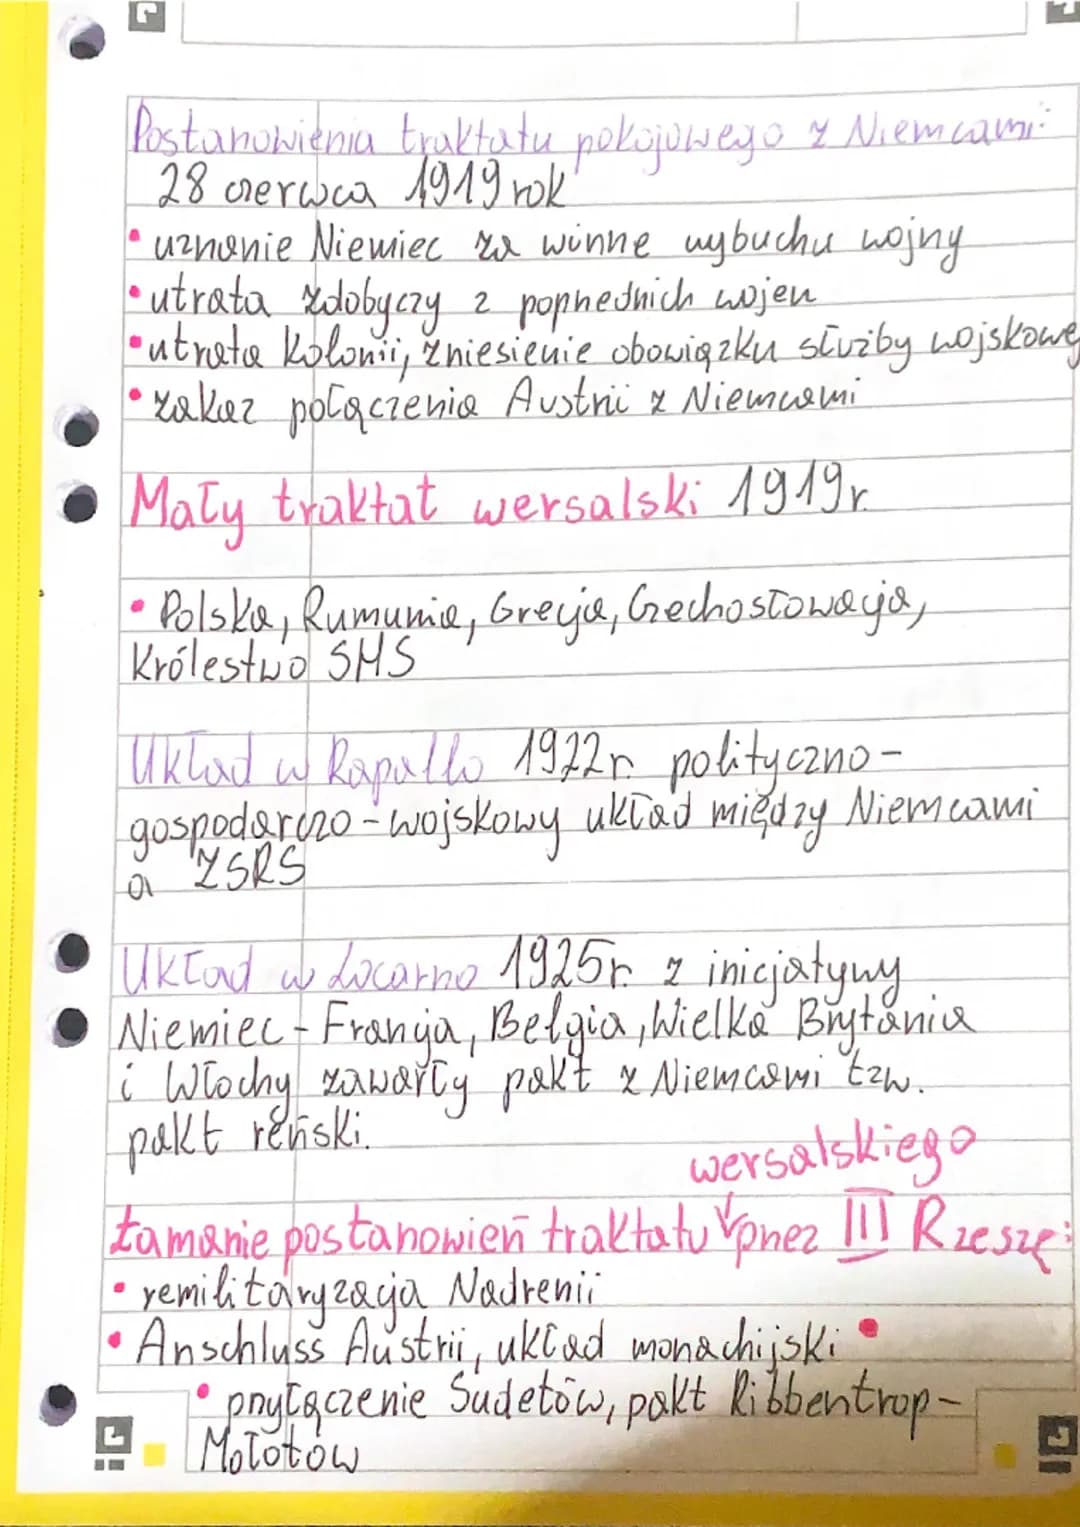 Postanowienia traktatu pokojowego z Niemcami:
28 czerwca 1919 rok
• uznanie Niemiec za winne wybuchu wojny
• utrata zdobyczy z poprzednich wojen
• utrata kolonii, zniesienie obowiązku służby wojskowej
• zakaz połączenia Austrii z Niemcami
Mały traktat wersalski 1919r.
• Polska, Rumunia, Grecja, Czechosłowacja,
Królestwo SHS
Układ w Rapallo 1922r. polityczno-
gospodarczo-wojskowy układ między Niemcami
a ZSRS
Układ w Locarno 1925r. z inicjatywy
Niemiec - Francja, Belgia, Wielka Brytania
i Włochy zawarły pakt z Niemcami tzw.
pakt reński.
wersalskiego
Łamanie postanowień traktatu przez III Rzeszę:
• remilitaryzacja Nadrenii
• Anschluss Austrii, układ monachijski •
• przyłączenie Sudetów, pakt Ribbentrop-
Mołotow